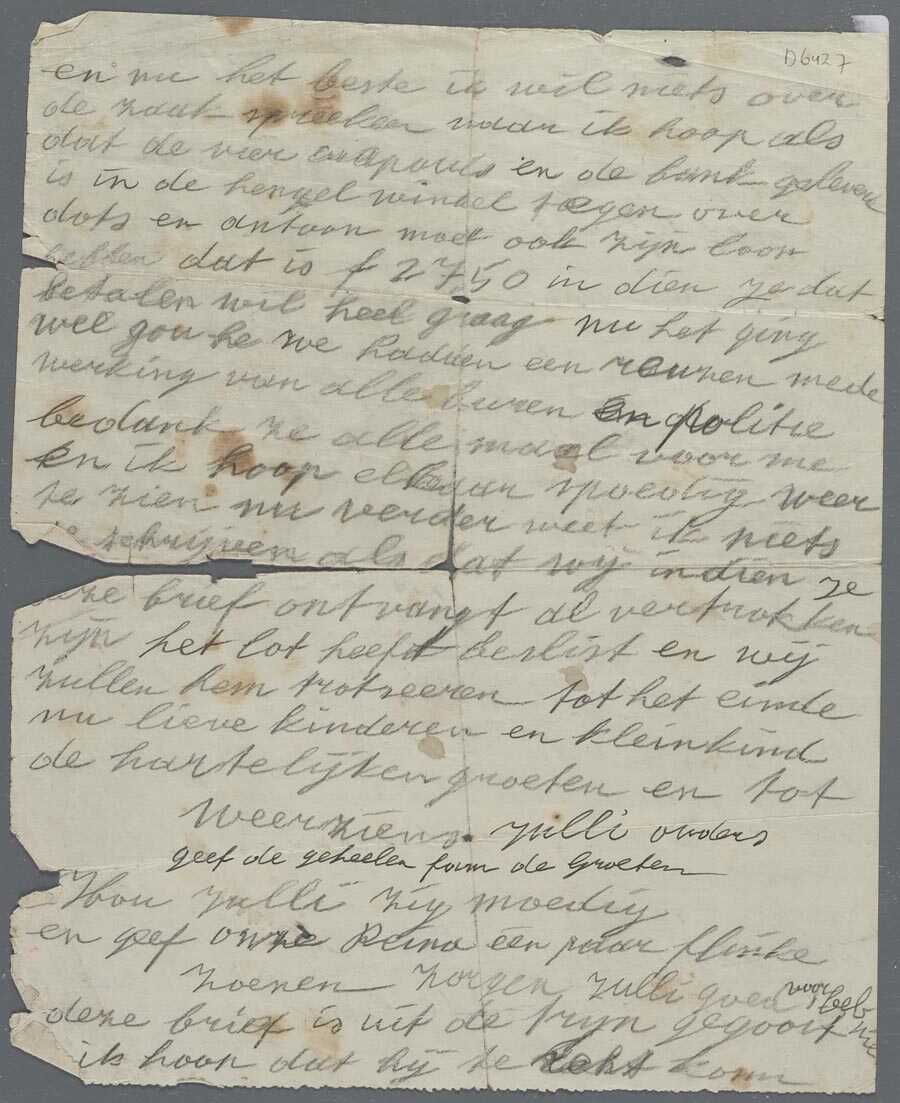 D6427
en nu het beste ik wil niets over
de zaak spreeken maar ik hoop als
dat de vier en de bank gelever
is in de hengel winkel tegen over
dots en antoon moet ook zijn loon
hebben dat is f 27,50 in dien ze dat
betalen wil heel graag nu het ging
wel gou he we hadden een reuzen mede
werking van alle buren en politie
bedank ze alle maal voor me
en ik hoop elkaar spoedig weer
te zien nu verder weet ik niets
te schrijven als dat wij indien ze
deze brief ontvangt al vertrokken
zijn het lot heeft beslist en wij
zullen hem trotseeren tot het einde
nu lieve kinderen en kleinkind
de hartelijken groeten en tot
weerziens jullie ouders
geef de geheelen fam de Groeten
Hou julli zig moedig
en geef onze Reina een paar flinke
zoenen zorgen julli goed voor
deze brief is uit de tryn gegooit
ik hoop dat hij te recht kom